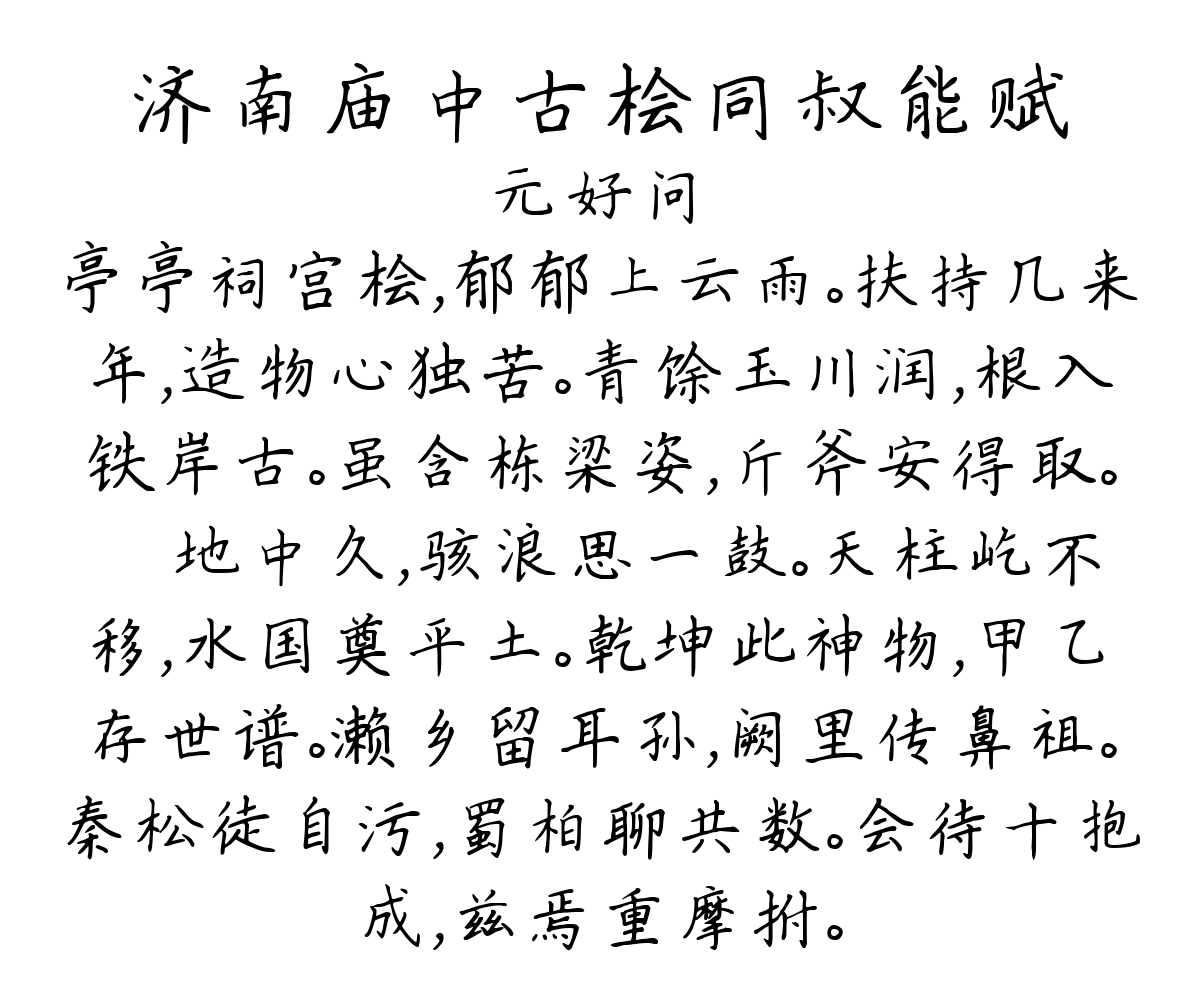 济南庙中古桧同叔能赋
元好问
亭亭祠宫桧,郁郁上云雨。扶持几来
年,造物心独苦。青馀玉川润,根入
铁岸古。虽含栋梁姿,斤斧安得取。
地中久,骇浪思一鼓。天柱屹不
移,水国奠平土。乾坤此神物,甲乙
存世谱。濑乡留耳孙,阙里传鼻祖。
秦松徒自污,蜀柏聊共数。会待十抱
成,兹焉重摩拊。